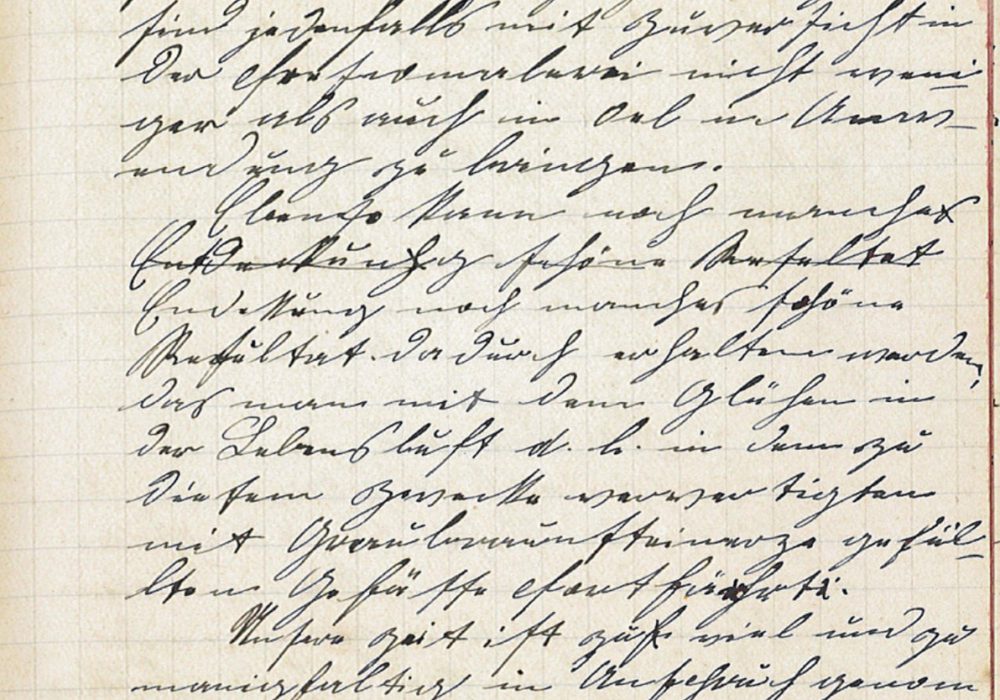 sind jedenfalls mit Zuversicht in
der Chresromalerei nicht weni-
ger als auch in Oel in Anw-
endung zu bringen.
Ebenso kann noch manches
Entdeckung schöne Resultat
Endekung noch manches schöne
Resultat dadurch erhalten werden,
das man mit dem Glühen in
der Lebensluft d. h. in dem zu
diesem Zwecke verwertigten
mit Graubraunsteinerze gefül-
lten Gefässe fortführte.
Unsere Zeit ist zu viel und zu
manigfaltig in Anspruch genom